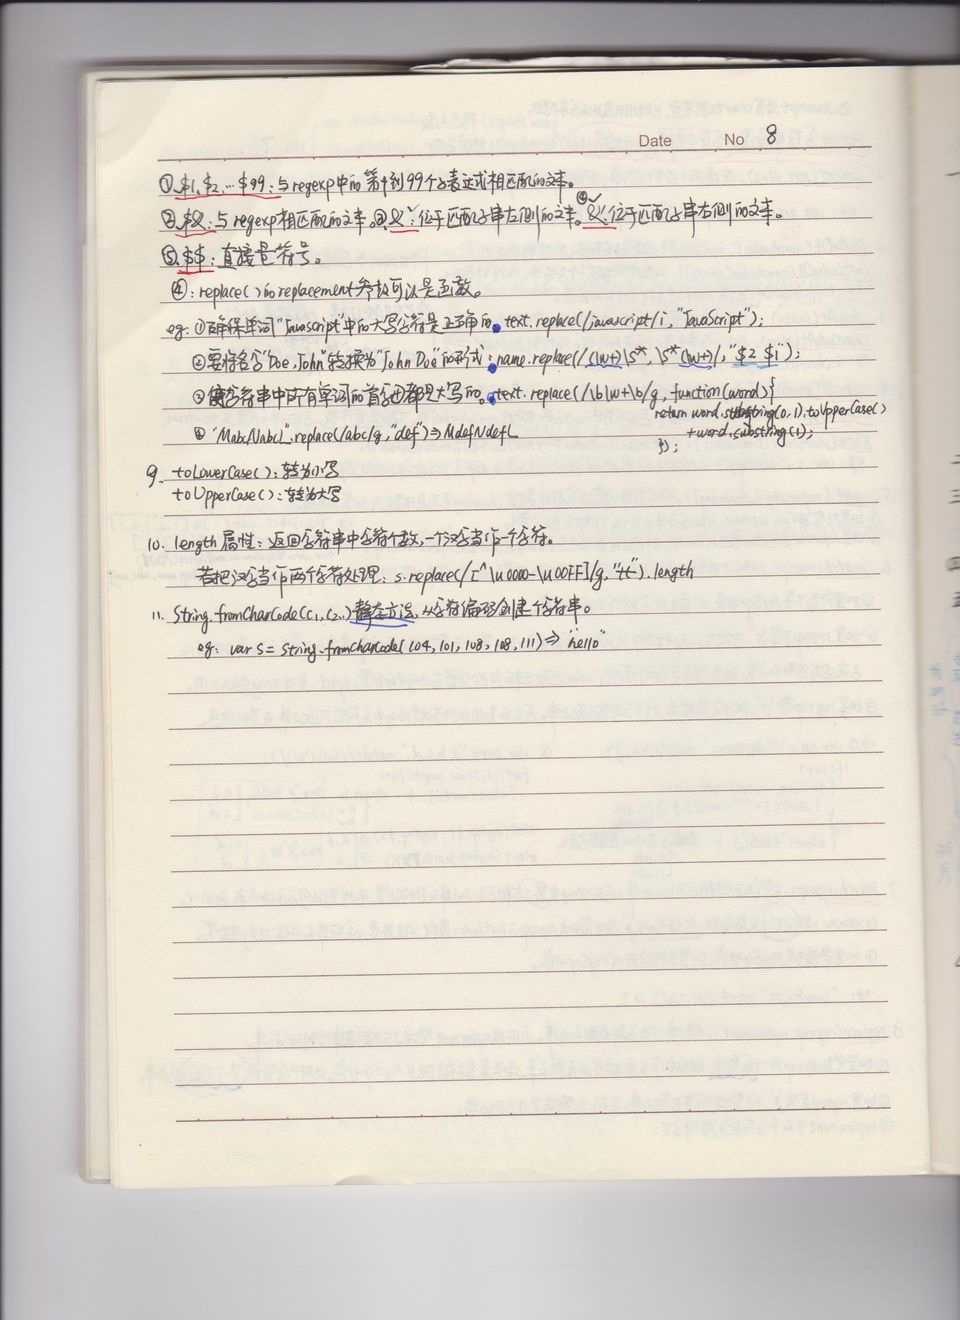 Date No 8
①.$1、$2、…$99：与regexp中的第1到99个子表达式相匹配的文本。
②.$&：与regexp相匹配的文本。③.$`：位于匹配子串左侧的文本。④$'：位于匹配子串右侧的文本。
⑤.$$：直接量符号。
④：replace()的replacement参数可以是函数。
eg：①确保单词"Javascript"中的大写字符是正确的。text.replace(/javascript/i,"JavaScript");
②要将名字"Doe,John"转换为"John Doe"的形式：name.replace(/(\w+)\s*,\s*(\w+)/,"$2 $1");
③使字符串中所有单词的首字母都是大写的。text.replace(/\b\w+\b/g,function(word){
return word.substring(0,1).toUpperCase()
+word.substring(1);
④"MabcNabcL".replace(/abc/g,"def")⇒MdefNdefL });
9. toLowerCase()：转为小写
toUpperCase()：转为大写
10. length属性：返回字符串中字符个数，一个汉字当作一个字符。
若把汉字当作两个字符处理：s.replace(/[^\u0000-\u00FF]/g,"tt").length
11. String.fromCharCode(c1,c2,)静态方法，从字符编码创建字符串。
eg：var s=String.fromCharCode(104,101,108,108,111)⇒"hello"